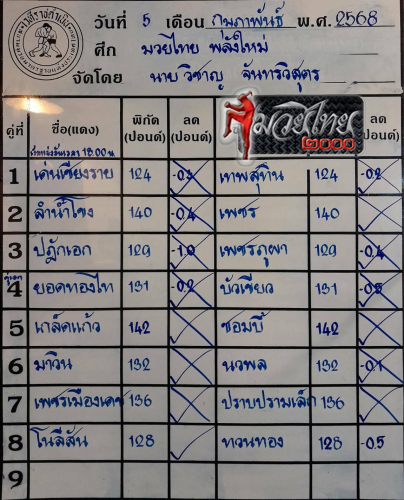 วันที่ 5 เดือน กุมภาพันธ์ พ.ศ. 2568
ศึก มวยไทย พลังใหม่
จัดโดย นาย วิชาญ จันทารวิสูตร
มวยไทย
๒๐๐๐
คู่ที่ ชื่อ(แดง) พิกัด (ปอนด์) ลด (ปอนด์) ลด (ปอนด์)
1 เด่นเชียงราย 124 -0.3 เทพสุทิน 124 -0.2
2 ลำน้ำโขง 140 -0.4 เพชร 140
3 ปฏักเอก 129 -1.0 เพชรภูผา 129 -0.4
คู่เอก
4 ยอดทองไท 131 -0.2 บัวเขียว 131 -0.5
5 เกล็ดแก้ว 142 ซอมบี้ 142
6 มาวิน 132 นวพล 132 -0.1
7 เพชรเมืองเดช 136 ปราบปรามเล็ก 136
8 โนลีสัน 128 ทวนทอง 128 -0.5
9